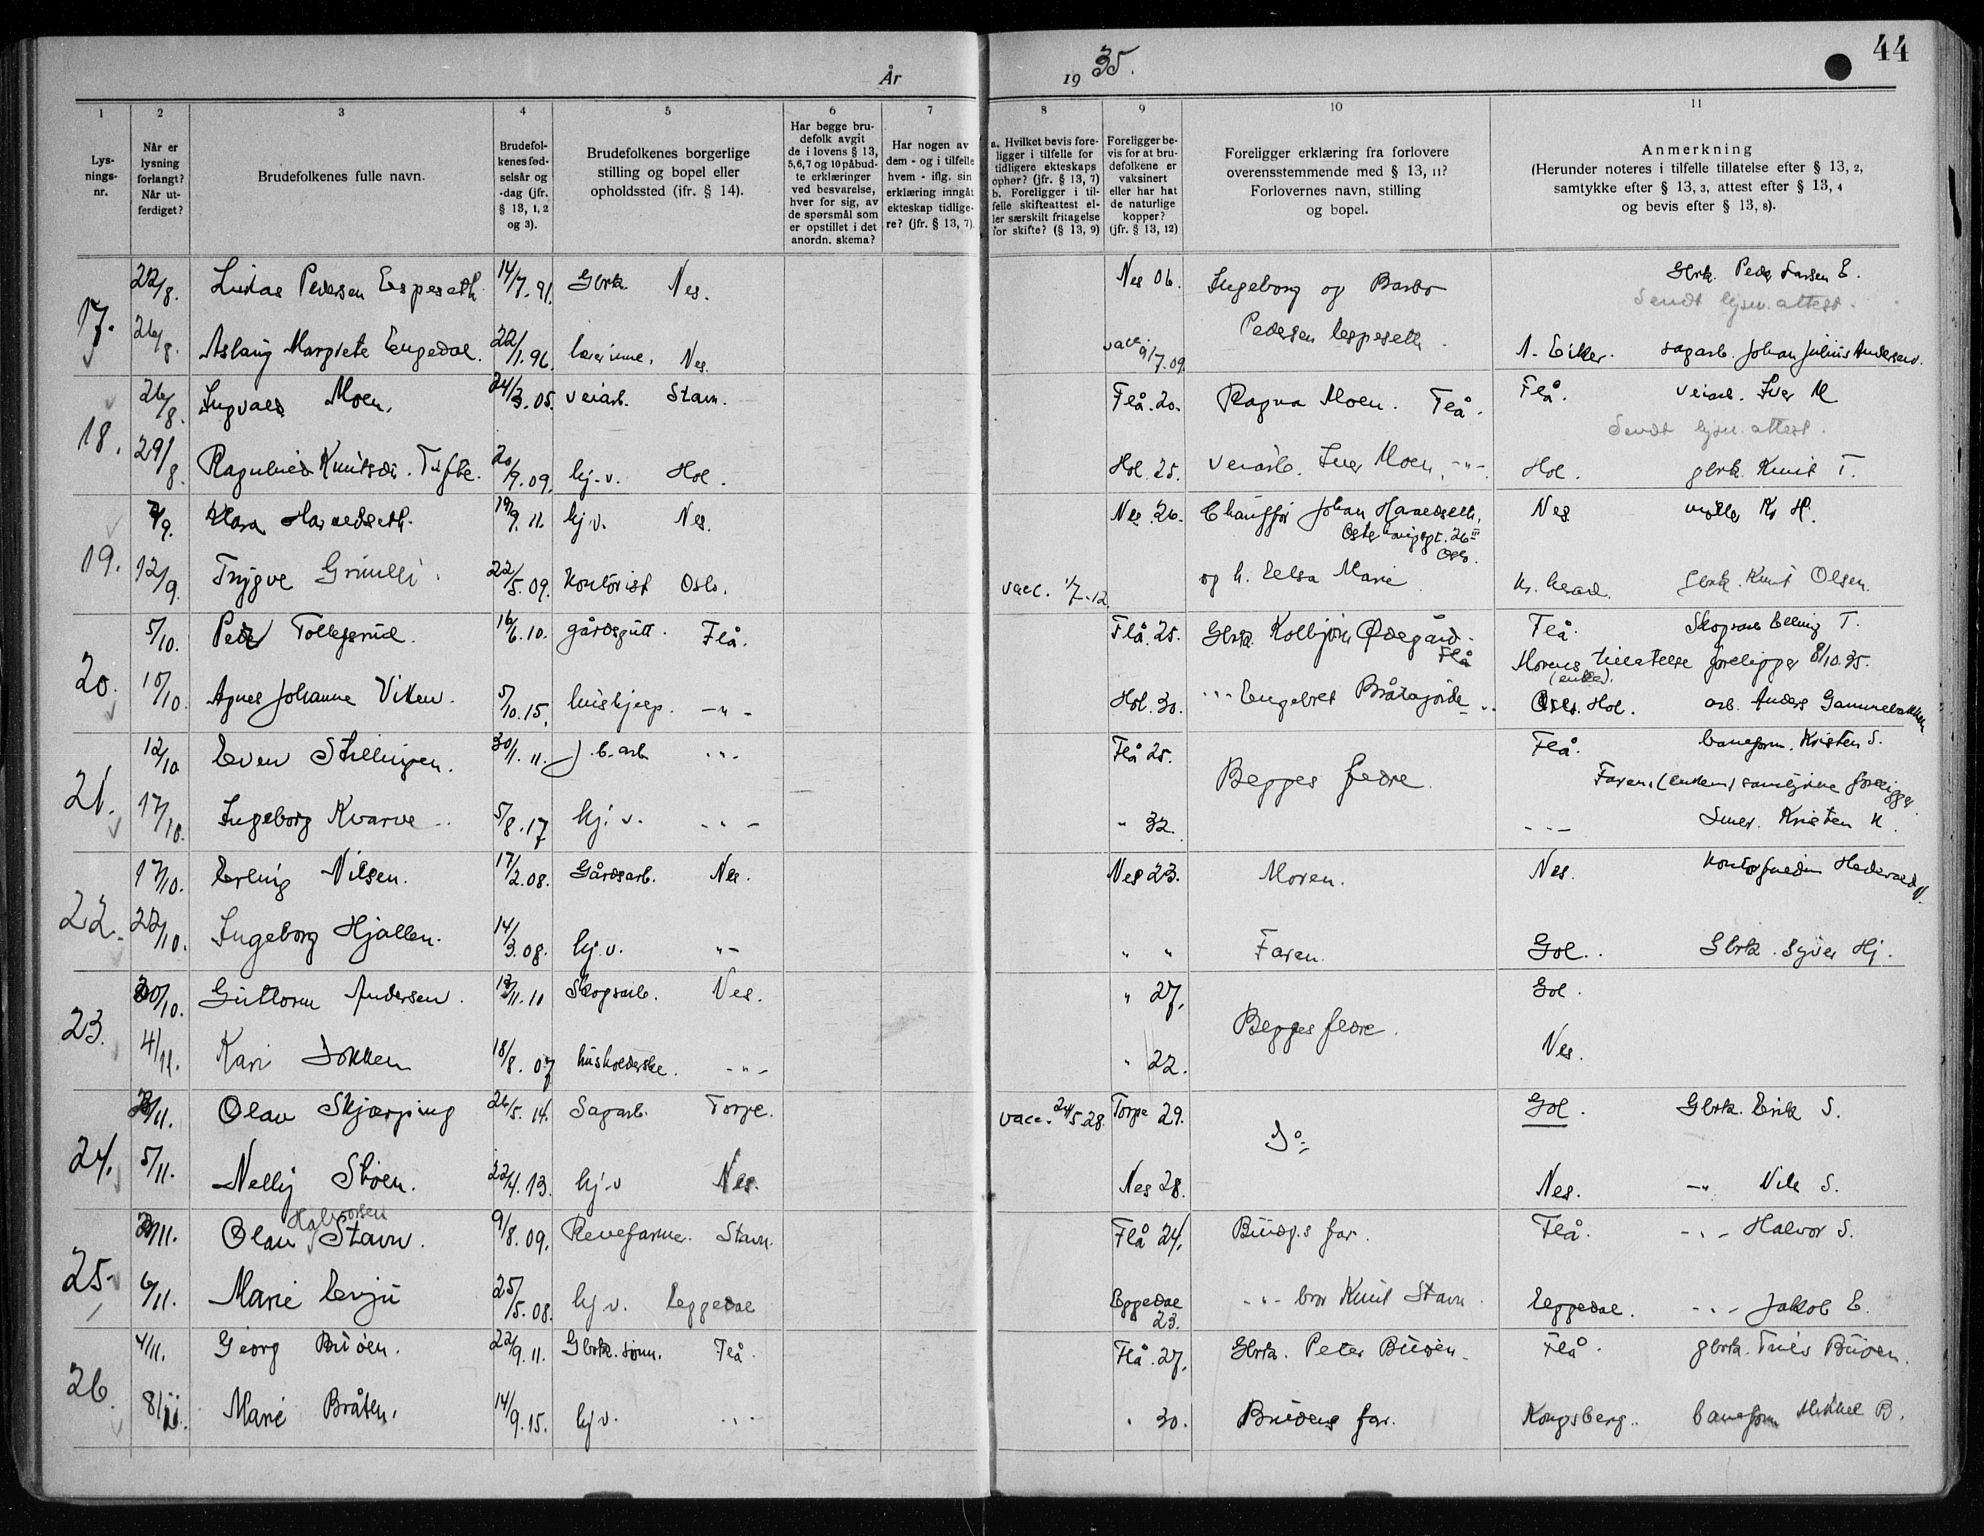 År 1935.
44
1 2 3 4 5 6 7 8 9 10 11
Lys-
nings-
nr.
Når er
lysning
forlangt?
Når ut-
ferdiget?
Brudefolkenes fulle navn.
Brudefol-
kenes fød-
selsår og
-dag (jfr.
§ 13, 1, 2
og 3).
Brudefolkenes borgerlige
stilling og bopel eller
opholdssted (ifr. § 14).
Har begge bru-
defolk avgit
de i lovens § 13,
5,6,7 og 10 påbud-
te erklæringer
ved besvarelse,
hver for sig, av
de spørsmål som
er opstillet i det
anordn. skema?
Har nogen av
dem - og i tilfelle
hvem - iflg. sin
erklæring inngåt
ekteskap tidlige-
re? (jfr. § 13, 7).
a. Hvilket bevis fore-
ligger i tilfelle for
tidligere ekteskaps
ophør? (jfr. § 13, 7)
b. Foreligger i til-
felle skifteattest el-
ler særskilt fritagelse
for skifte? (§ 13, 9)
Foreligger be-
vis for at bru-
defolkene er
vaksinert
eller har hat
de naturlige
kopper?
(jfr. § 13, 12)
Foreligger erklæring fra forlovere
overensstemmende med § 13, 11?
Forlovernes navn, stilling
og bopel.
Anmerkning
(Herunder noteres i tilfelle tillatelse efter § 13, 2,
samtykke efter § 13, 3, attest efter § 13, 4
og bevis efter § 13, 8).
17. 22/8. Pedersen Espeseth 14/7.91. Gbrk. Nes. Nes 06. Ingeborg og Barbo Gbrk. Peder Larsen E.
Sendt lysn. attest.
26/8. Aslaug Margrete Engedal. 22/1.96. lærerinne. Nes. vacc. 9/7.09. Pedersen Espeseth. sagarb. Johan Julius Andersen.
18. 26/8. Ingvald Moen. 24/3.05. veiarb. Stavn. Flå.20. Ragna Moen. Flå. Flå. veiarb. Iver M
Sendt lysn. attest.
29/8. Ragnhild Knutsdr. Tufte. 20/9.09. hj.v. Hol. Hol.25. veiarb. Iver Moen, -"- Hol. gbrk. Knut T.
19. Klara Haraldseth. hj.v. Nes. Nes.26. Chauffør Johan Haraldseth, Nes K. H.
Oslo.
12/9. Trygve 22/5.09. Kontorist Oslo. vacc. 1/7.12 og h. Elsa Marie gbrk. Knut Olsen.
20. 5/10. Peder Tollefsrud. 16/6.10. gårdsgutt. Flå. Flå.25. Gbrk. Kolbjørn Ødegård. Flå Flå. Skogsarb. Elling T.
Morens tillatelse foreligger 8/10.35.
(enke).
10/10. Agnes Johanne Viken. 5/10.15. hushjelp. -"- Hol.30. -"- Engebret Bråtagjorde -"- Hol. arb. Anders Gammelbakken
21. 12/10. Even Stillingen. 30/1.11. j.b.arb -"- Flå 25. Begges fedre. Flå. baneform. Kristen S.
Farens (enkem) samtykke foreligger
17/10. Ingeborg Kvarve. 5/8.17 hj.v. -"- " 32. -"- Kristen K.
22. 17/10. Erling Nilsen. 17/2.08. Gårdsarb. Nes. Nes 23. Moren. Nes.
22/10. Ingeborg Hjallen. 14/3.08. hj.v. "- " " Faren. Gol. Gbrk. Syver Hj.
23. 30/10. Guttorm Andersen. Skogsarb. Nes. " 27. Begges fedre. Gol.
4/11. Kari 18/8.07 husholderske. -"- " 22. Nes.
24. Olav Skjærping 26/5.14. Sagarb. Torpe. vacc. 24/5.28. Torpe 29. Do Gol. Gbrk. Erik S.
5/11. Nelly Støen. 22/4.13. hj.v Nes. Nes 28. Nes. -" Nils S.
25. Olav Halvorsen Stavn. 9/8.09. Revefarmer. Stavn. Flå 24. Brudg.s far. Flå. -"- Halvor S.
6/11. Marie Evju 25/5.08. hj.v. Eggedal Eggedal 23. -"- bror Knut Stavn. Eggedal. -"- Jakob E.
26. 4/11. Georg Buøen. 22/9.11. Gbrk. sønn. Flå. Flå.27. Gbrk. Peter Buøen. Flå. gbrk. Buøen.
8/11. Marie Bråten. 14/9.15. hj.v. -"- " 30. Brudens far. Kongsberg. baneform Mikkel B.